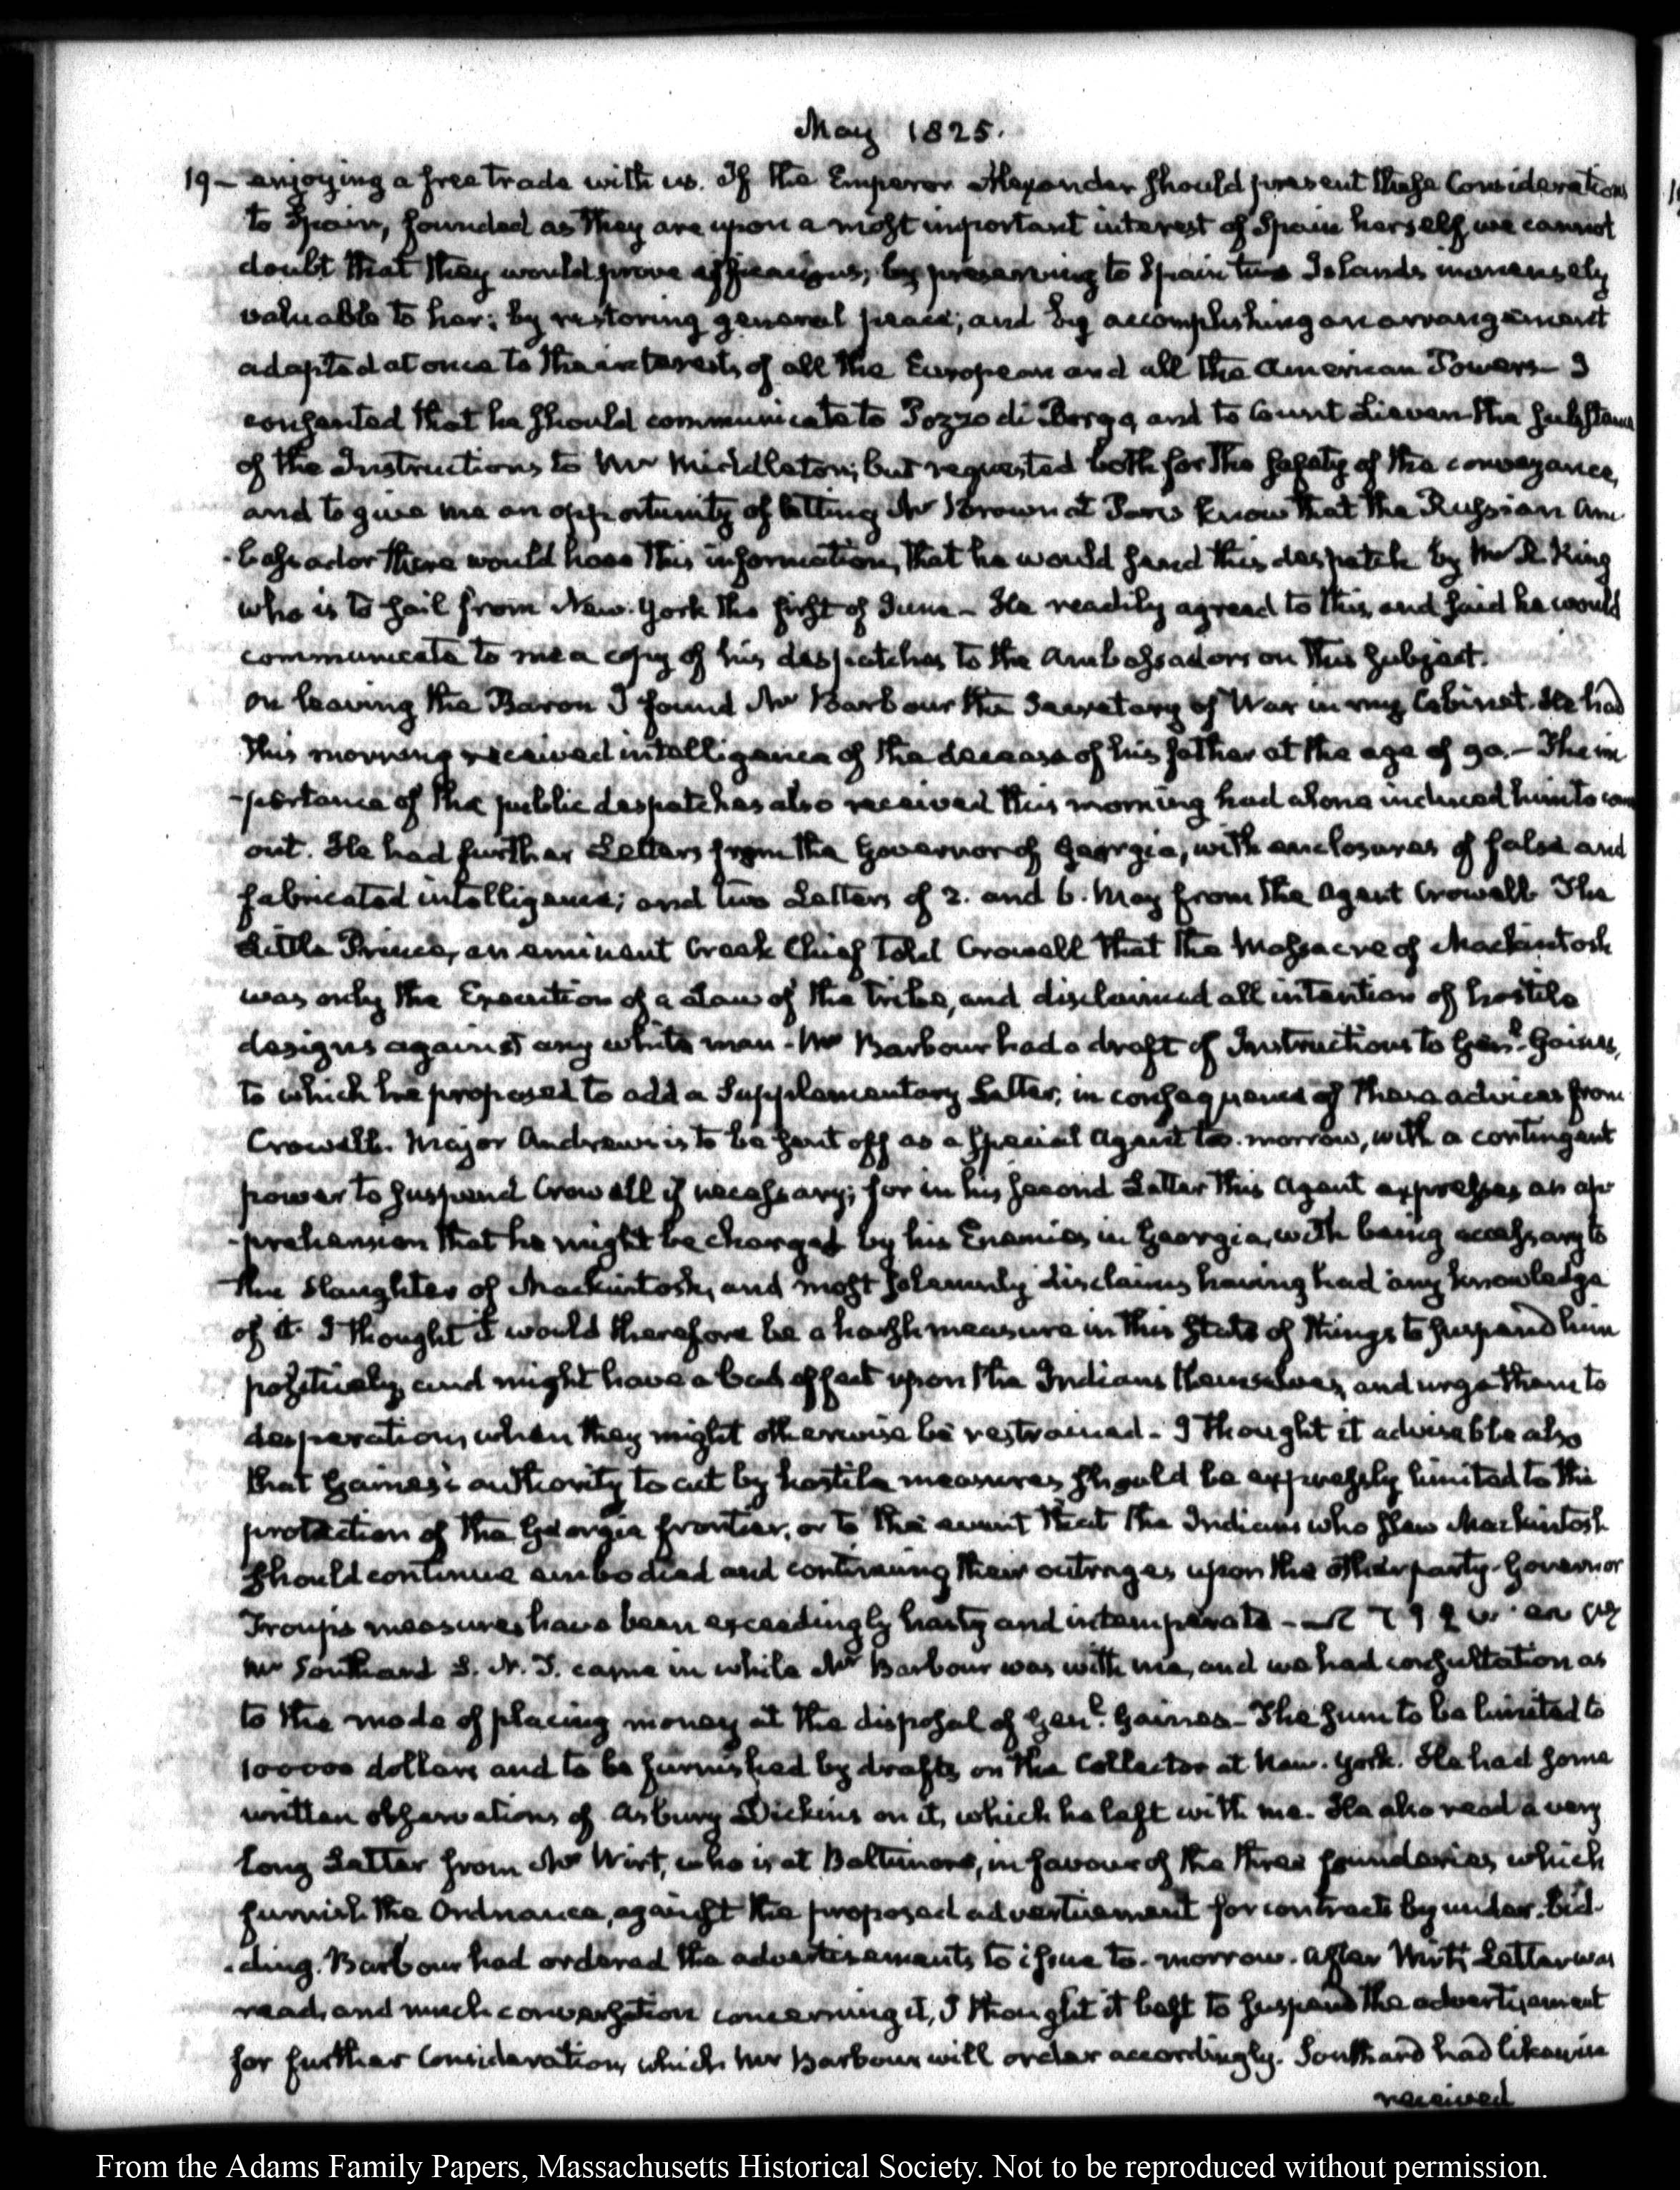 May 1825.
19 – enjoying a free trade with us. If the Emperor Alexander should present these Considerations
to Spain, founded as they are upon a most important interest of Spain herself, we cannot
doubt that they would prove efficacious; by preserving to Spain two Islands immensely
valuable to her; by restoring general peace; and by accomplishing an arrangement
adapted at once to the interests of all the European and all the American Powers – I
consented that he should communicate to Pozzo di Borgo, and to Count Lieven the substance
of the Instructions to Mr Middleton; but requested both for the safety of the conveyance,
and to give me an opportunity of letting Mr Brown at Paris know that the Russian Am-
-bassador there would have this information, that he would send this despatch by Mr R. King
who is to sail from New-York the first of June – He readily agreed to this, and said he would
communicate to me a copy of his despatches to the Ambassadors on this subject.
On leaving the Baron I found Mr Barbour the Secretary of War in my Cabinet. He had
this morning received intelligence of the decease of his father at the age of 90. – The im
-portance of the public despatches also received this morning had alone induced him to come
out. He had further Letters from the Governor of Georgia, with enclosures of false and
fabricated intelligence; and two Letters of 2. and 6. May from the Agent Crowell. The
Little Prince, an eminent Creek Chief told Crowell that the Massacre of Mackintosh
was only the Execution of a Law of the tribe, and disclaimed all intention of hostile
designs against any white man – Mr Barbour had a draft of Instructions to Genl. Gaines,
to which he proposed to add a Supplementary Letter, in consequence of these advices from
Crowell. Major Andrews is to be sent off as a special Agent to-morrow, with a contingent
power to suspend Crowell if necessary; for in his second Letter this Agent expresses an ap
-prehension that he might be charged by his Enemies in Georgia, with being accessary to
the slaughter of Mackintosh, and most solemnly disclaims having had any knowledge
of it. I thought it would therefore be a harsh measure in this state of things to suspend him
positively, and might have a bad effect upon the Indians themselves, and urge them to
desperation, when they might otherwise be restrained – I thought it adviseable also
that Gaines's authority to act by hostile measures should be expressly limited to the
protection of the Georgia frontier, or to the event that the Indians who slew Mackintosh
should continue embodied and continuing their outrages upon the other party – Governor
Troup's measures have been exceedingly hasty and intemperate –
Mr Southard S. N. T. came in while Mr Barbour was with me, and we had consultation as
to the mode of placing money at the disposal of Genl. Gaines – The sum to be limited to
100000 dollars and to be furnished by drafts on the Collector at New-York. He had some
written observations of Asbury Dickins on it, which he left with me. He also read a very
long Letter from Mr Wirt, who is at Baltimore, in favour of the three founderies which
furnish the Ordnance, against the proposed advertisement for contracts by under-bid-
-ding. Barbour had ordered the advertisements to issue to-morrow. After Wirt's Letter was
read, and much conversation concerning it, I thought it best to suspend the advertisement
for further Consideration, which Mr Barbour will order accordingly. Southard had likewise
received
From the Adams Family Papers, Massachusetts Historical Society. Not to be reproduced without permission.